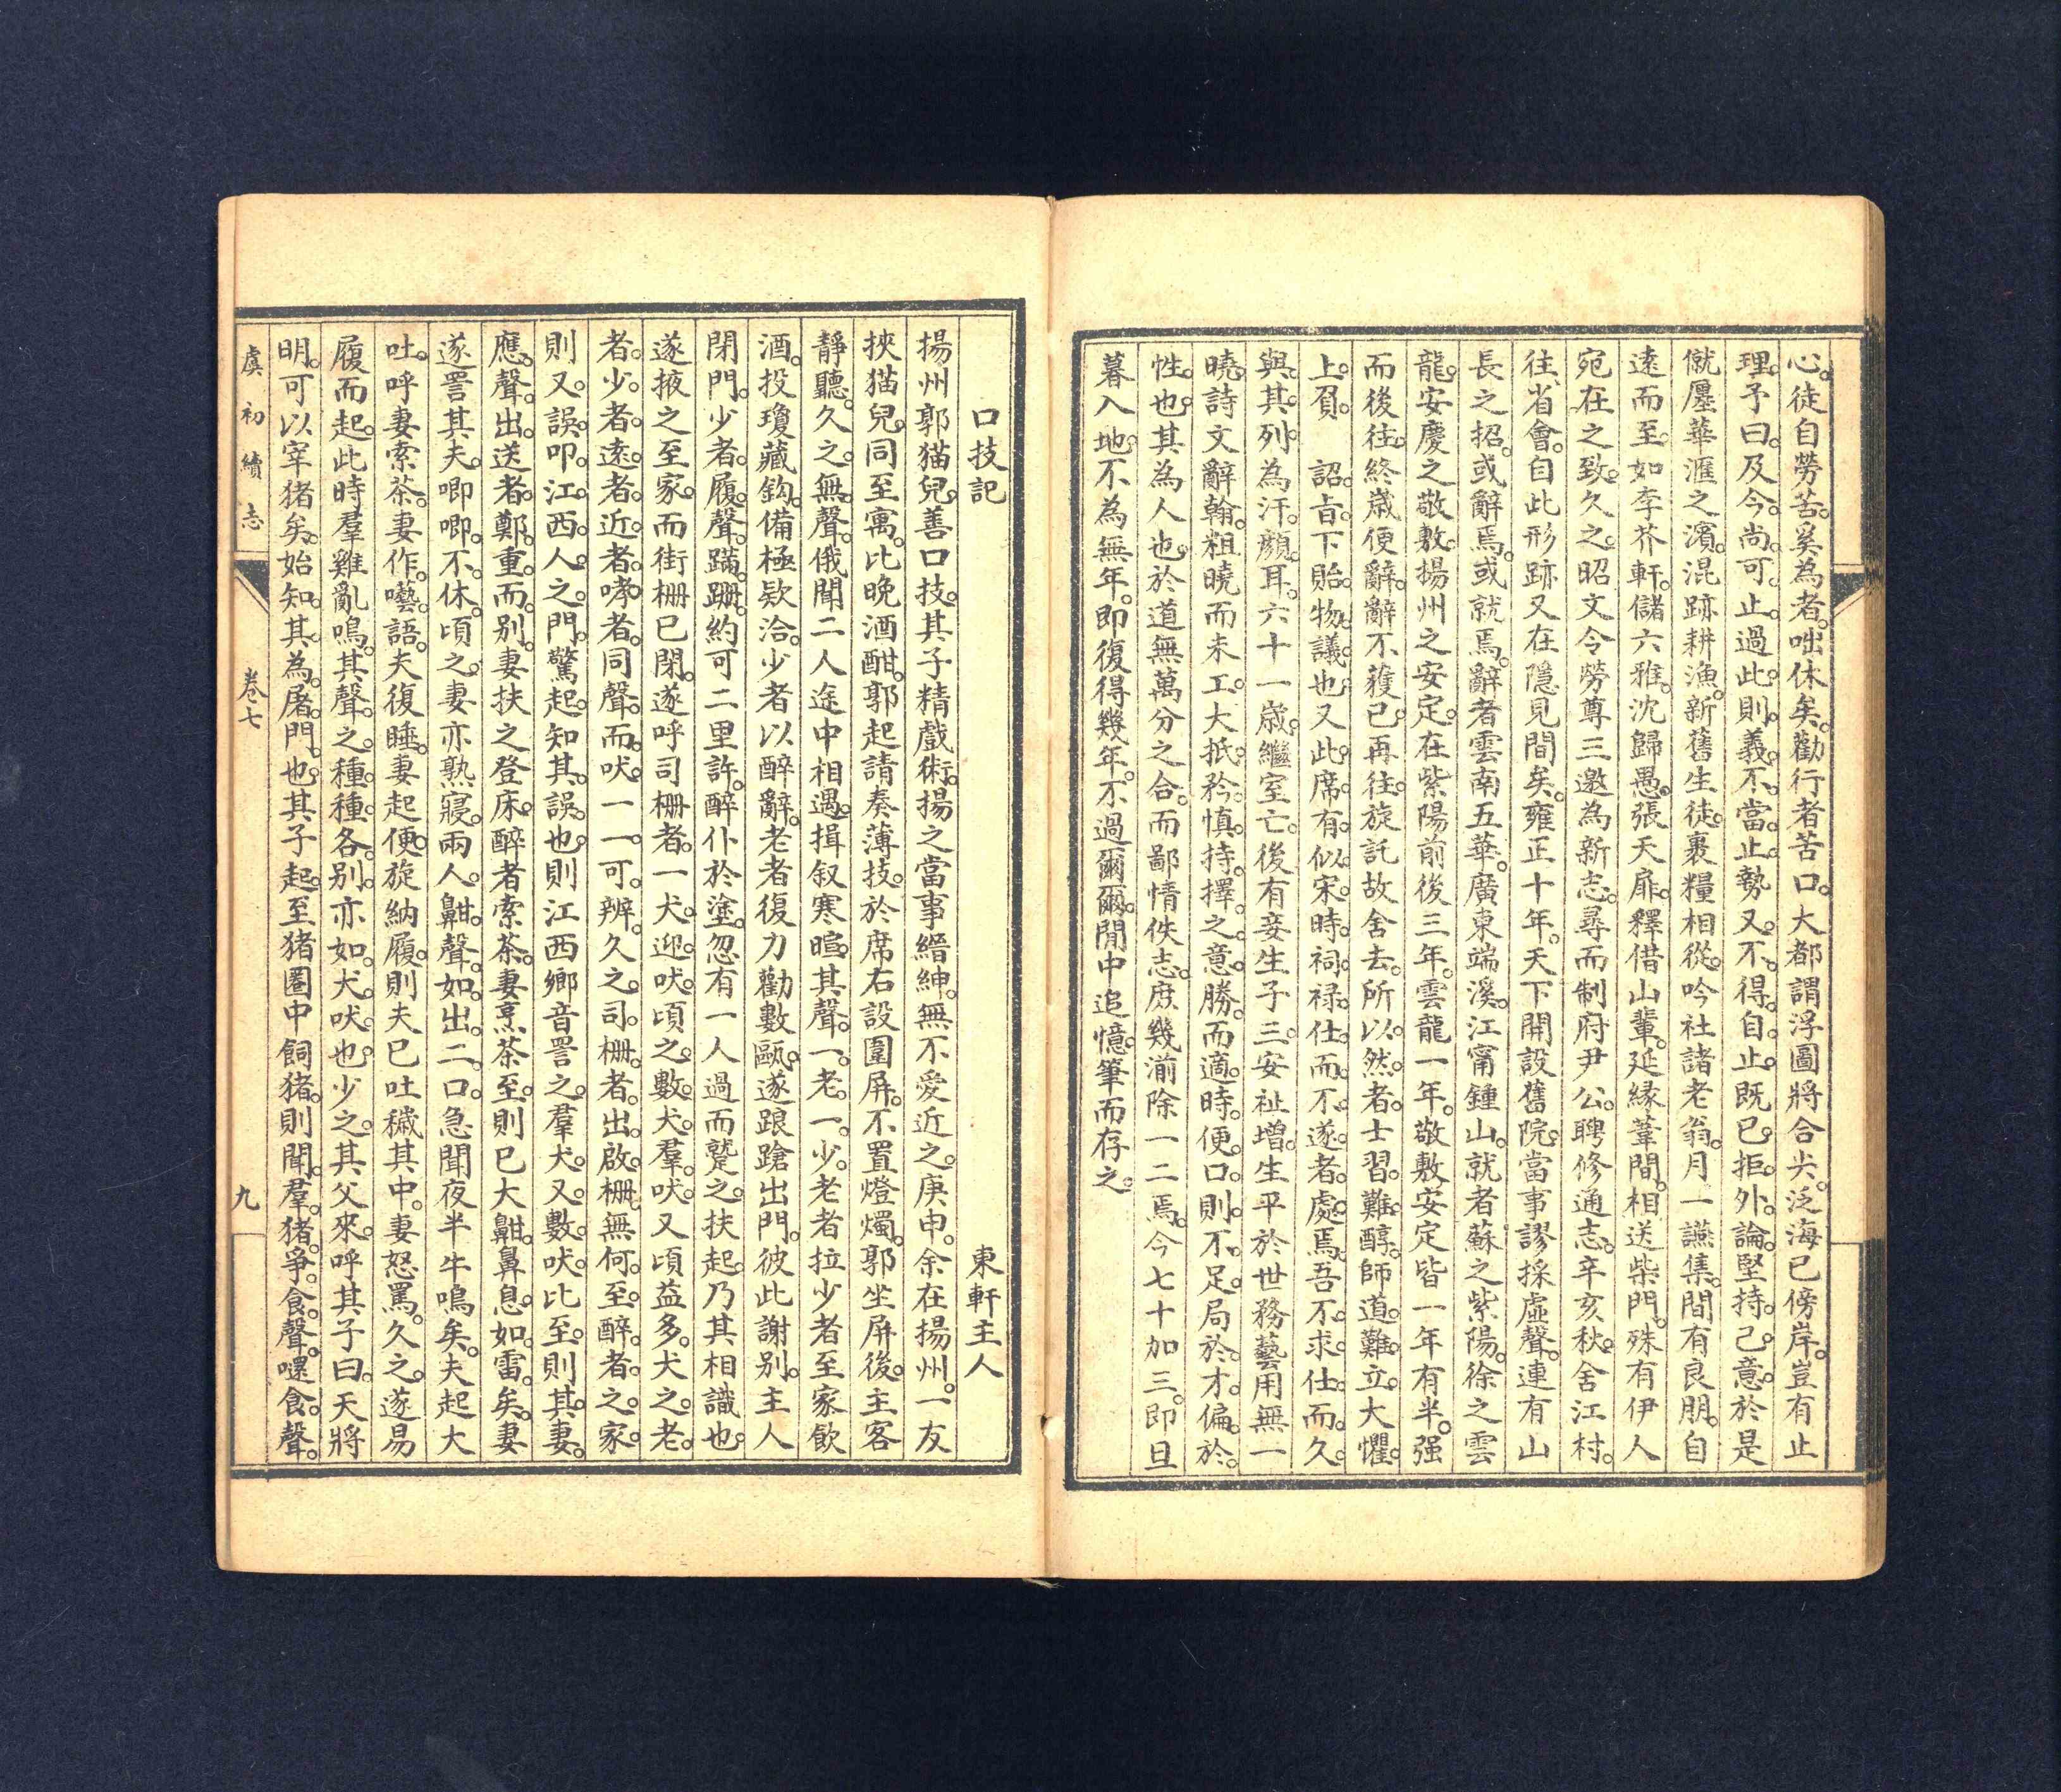 心徒自勞苦奚為者咄休矣勸行者苦口大都謂浮圖將合尖泛海已傍岸豈有止
理予曰及今尚可止過此則義不當止勢又不得自止既已拒外論堅持己意於是
僦廛華滙之濱混跡耕漁新舊生徒裹糧相從吟社諸老翁月一讌集間有良朋自
遠而至如李芥軒儲六雅沈歸愚張天扉釋借山輩延緣葦間相送柴門殊有伊人
宛在之致久之昭文令勞尊三邀為新志尋而制府尹公聘修通志辛亥秋舍江村
往省會自此形跡又在隱見間矣雍正十年天下開設舊院當事謬採虛聲連有山
長之招或辭焉或就焉辭者雲南五華廣東端溪江甯鍾山就者蘇之紫陽徐之雲
龍安慶之敬敷揚州之安定在紫陽前後三年雲龍一年敬敷安定皆一年有半强
而後往終歲便辭辭不獲已再往旋託故舍去所以然者士習難醇師道難立大懼
上負　詔旨下貽物議也又此席有似宋時祠祿仕而不遂者處焉吾不求仕而久
與其列為汗顏耳六十一歲繼室亡後有妾生子三安祉增生平於世務藝用無一
曉詩文辭翰粗曉而未工大抵矜慎持擇之意勝而適時便口則不足局於才偏於
性也其為人也於道無萬分之合而鄙情佚志庶幾湔除一二焉今七十加三即旦
暮入地不為無年即復得幾年不過爾爾閒中追憶筆而存之
口技記　東軒主人
揚州郭猫兒善口技其子精戲術揚之當事縉紳無不愛近之庚申余在揚州一友
挾猫兒同至寓比晚酒酣郭起請奏薄技於席右設圍屏不置燈燭郭坐屏後主客
靜聽久之無聲俄聞二人途中相遇揖叙寒暄其聲一老一少老者拉少者至家飲
酒投瓊藏鈎備極欵洽少者以醉辭老者復力勸數甌遂踉蹌出門彼此謝別主人
閉門少者履聲蹣跚約可二里許醉仆於塗忽有一人過而蹵之扶起乃其相識也
遂掖之至家而街栅已閉遂呼司栅者一犬迎吠頃之數犬羣吠又頃益多犬之老
者少者遠者近者哮者同聲而吠一一可辨久之司栅者出啟栅無何至醉者之家
則又誤叩江西人之門驚起知其誤也則江西鄉音詈之羣犬又數吠比至則其妻
應聲出送者鄭重而別妻扶之登床醉者索茶妻烹茶至則已大鼾鼻息如雷矣妻
遂詈其夫唧唧不休頃之妻亦熟寢兩人鼾聲如出二口急聞夜半牛鳴矣夫起大
吐呼妻索茶妻作囈語夫復睡妻起便旋納履則夫已吐穢其中妻怒罵久之遂易
履而起此時羣雞亂鳴其聲之種種各別亦如犬吠也少之其父來呼其子曰天將
明可以宰猪矣始知其為屠門也其子起至猪圈中飼猪則聞羣猪爭食聲嘿食聲
虞初續志　卷七　九